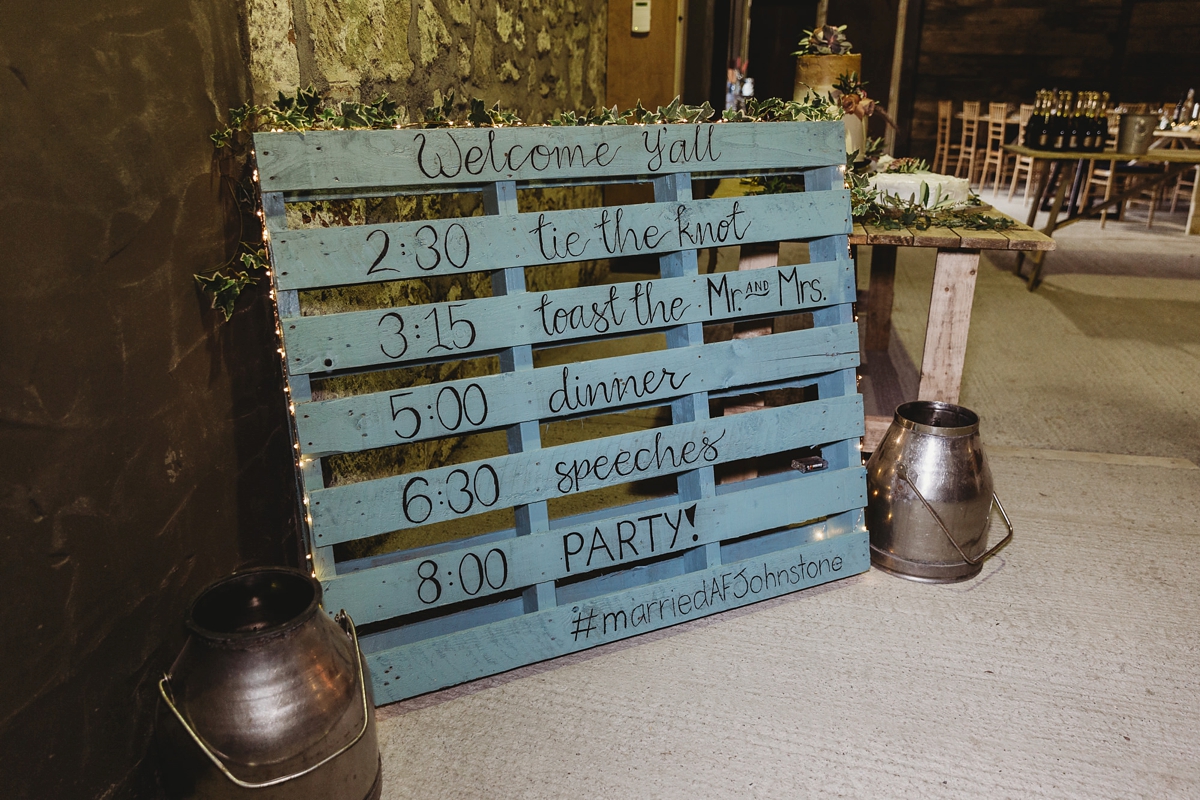 Welcome Y'all
2:30 tie the knot
3:15 toast the Mr. AND Mrs.
5:00 dinner
6:30 speeches
8:00 PARTY!
#marriedAFJohnstone